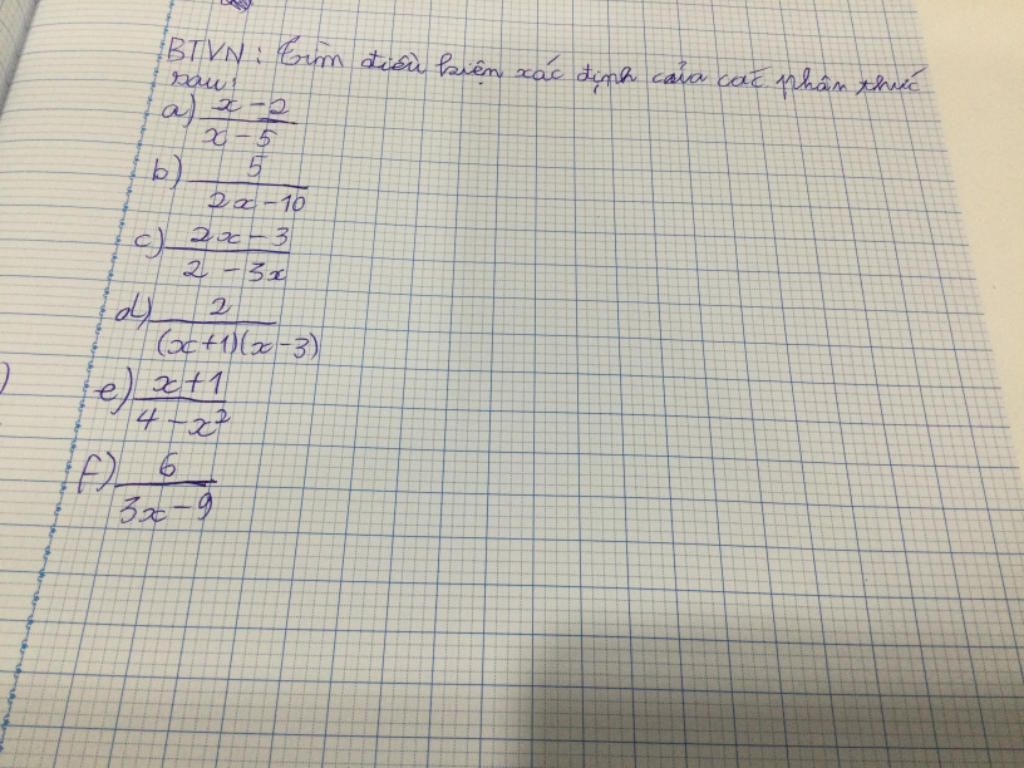 BTVN: Tìm điều kiện xác định của các phân thức
sau:
a) x - 2
x - 5
b) 5
2x - 10
c) 2x - 3
2 - 3x
d) 2
(x+1)(x-3)
e) x+1
4 - x²
f) 6
3x - 9